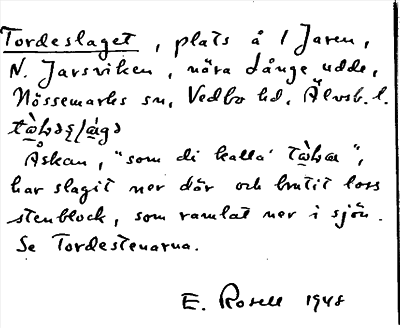 Tordeslaget, plats å l Jaren,
N. Jarsviken, nära Långe udde,
Nössemarks sn, Vedbo hd, Älvsb. l.
Åskan, "som di kalla'
har slagit ner där och brutit loss
stenblock, som ramlat ner i sjön.
Se Tordestenarna.
E. Rosell 1948